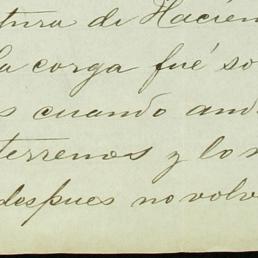 tura de Hacien
la corga fué so
s cuando and
terrenos y lo
despues no volv